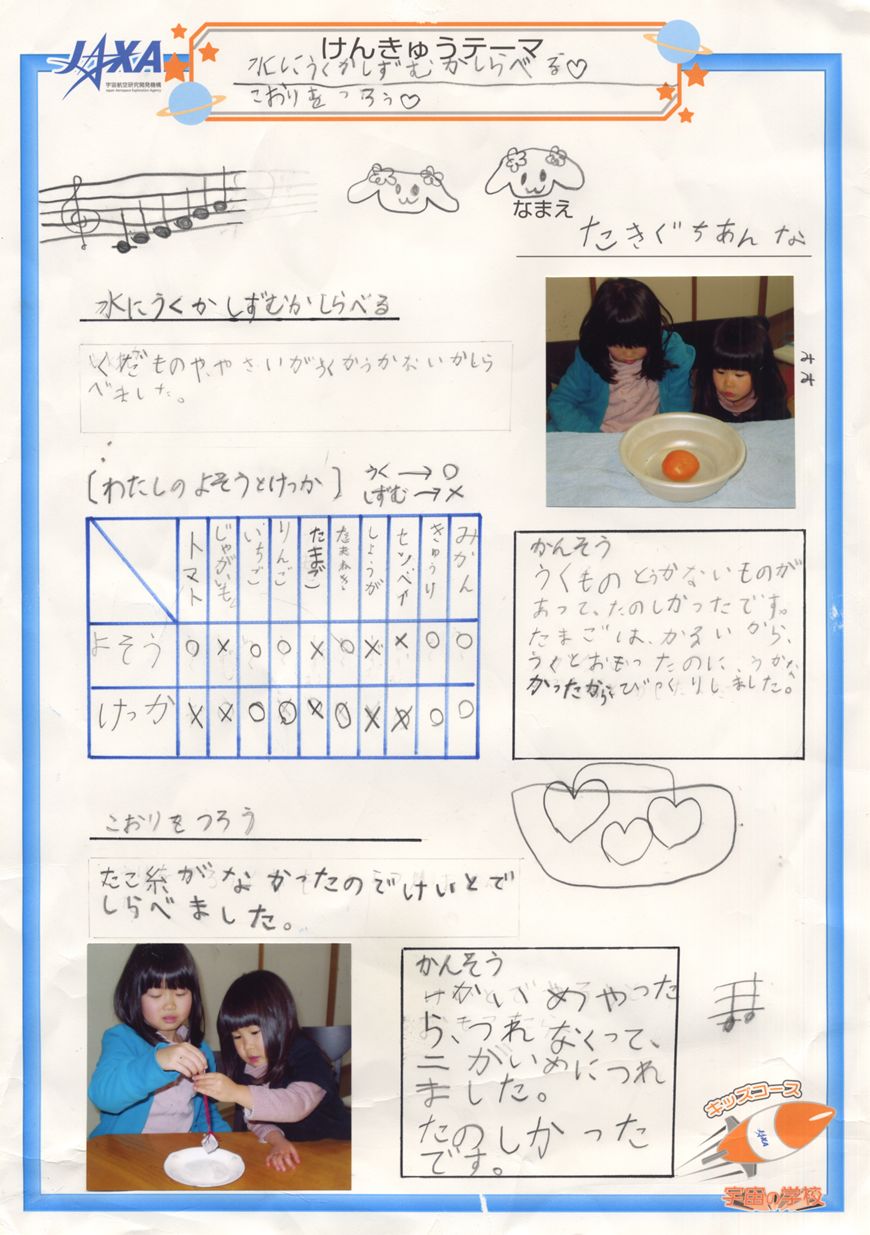 JAXA
宇宙航空研究開発機構
Japan Aerospace Exploration Agency
けんきゅうテーマ
水にうくかしずむかしらべる♡
こおりをつろう♡
なまえ
たきぐちあんな
水にうくかしずむかしらべる
くだものや、やさいがうくかうかないかしら
べました。
[わたしのよそうとけっか]
うく→○
しずむ→×
トマト じゃがいも いちご りんご たまご たまねぎ しょうが きゅうり みかん
よそう ○ × ○ ○ × ○ × × ○ ○
けっか × × ○ ○ × ○ × × ○ ○
かんそう
うくものとうかないものが
あって、たのしかったです。
たまごは、かるいから、
うくとおもったのに、うかな
かったからびっくりしました。
こおりをつろう
たこ糸がなかったのでけいとで
しらべました。
かんそう
かいめやった
ら、つれなくって、
二かいめにつれ
ました。
たのしかった
です。
キッズコース
JAXA
宇宙の学校